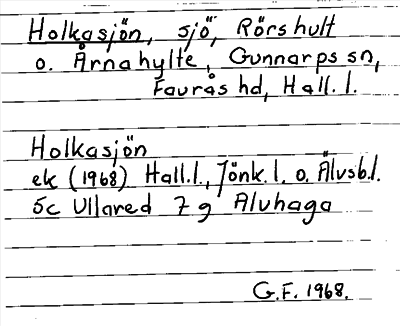 Holkasjön, sjö, Rörshult
o. Årnahylte, Gunnarps sn,
Faurås hd, Hall. l.
Holkasjön
ek (1968) Hall.l., Jönk.l. o. Älvsb.l.
5c Ullared 7g Aluhaga
G.F. 1968.